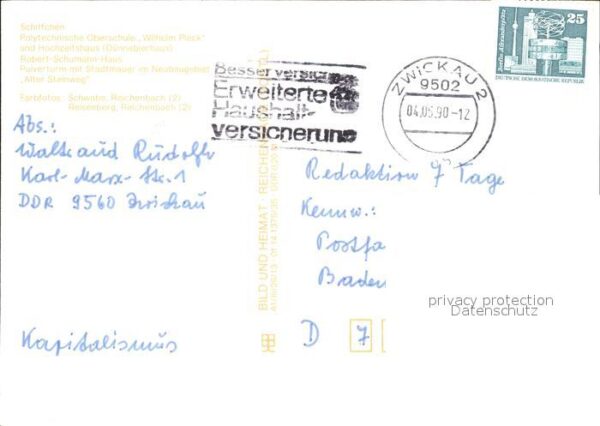 Schiffchen
Polytechnische Oberschule "Wilhelm Pieck"
und Hochzeitshaus (Dünnebierhaus)
Robert-Schumann-Haus
Pulverturm mit Stadtmauer im Neubaugebiet
"Alter Steinweg"
Farbfotos: Schwabe, Reichenbach (2)
Reisenberg, Reichenbach (2)
Besser versich
Erweiterte
Haushalt-
versicherung
ZWICKAU 2
9502
04.05.90-12
25
Berlin, Alexanderplatz
DEUTSCHE DEMOKRATISCHE REPUBLIK
Abs.:
Waltraud Rudolph
Karl-Marx-Str. 1
DDR 9560 Zwickau
Kapitalismus
BILD UND HEIMAT REICHENBACH
Redaktion 7 Tage
Kennw.:
Postfa
Baden
D 7
privacy protection
Datenschutz